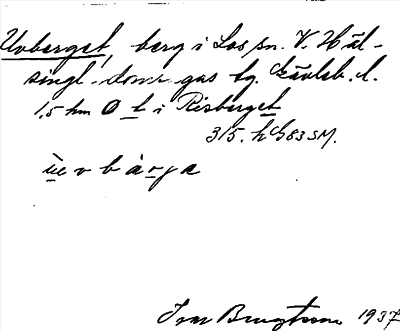 Uvberget, berg i Los sn. V. Häl-
singl. doms gas tg. Gävleb. l.
1,5 km O t i Risberget
315. hG83SM.
u v b à r j a
Ivar Bengtsson 1937